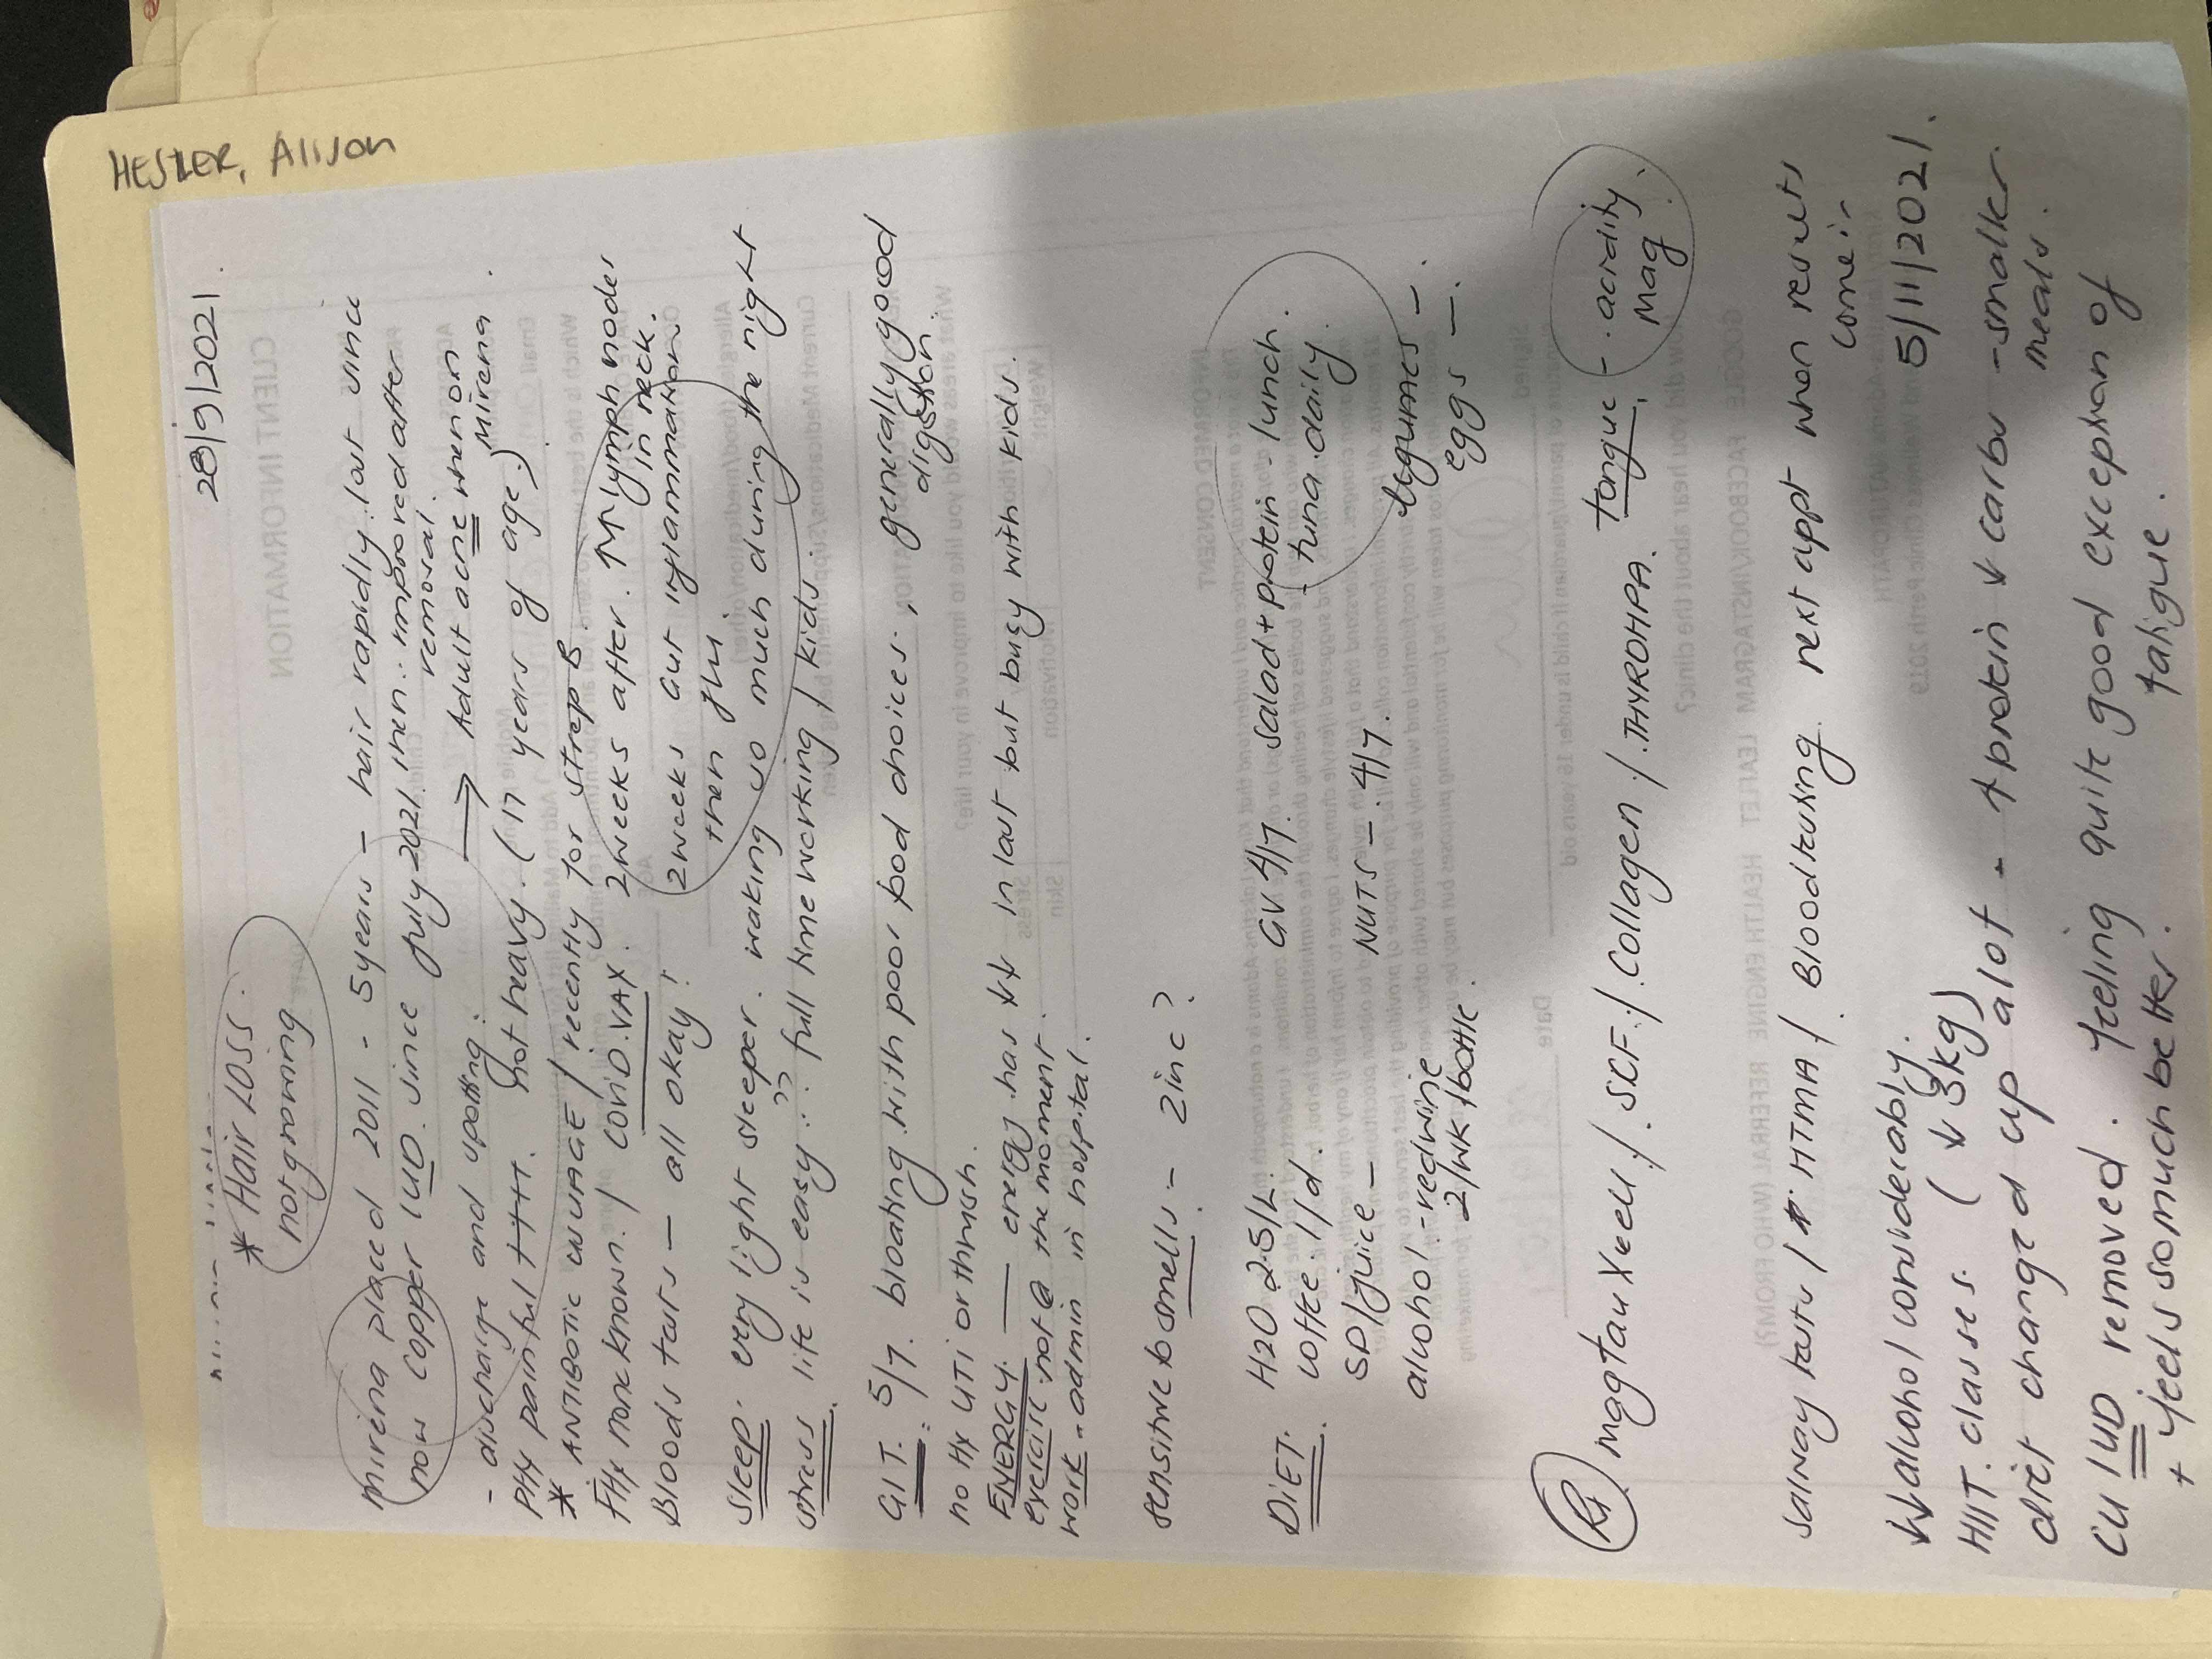 HESLER, Alison
28/9/2021
* Hair Loss.
not growing
mirena placed 2011 - 5 years - hair rapidly lost since
now copper IUD. since July 2021. then improved after
removal.
→ Adult acne when on
Mirena.
- discharge and spotting.
PHx painful +++. not heavy. (17 years of age.)
* ANTIBIOTIC USUAGE / recently for strep B.
FHx none known. / COVID.VAX. 2 weeks after. ↑↑ lymph nodes
in neck.
Bloods tests - all okay! 2 weeks gut inflammation
then flu.
Sleep. very light sleeper. waking so much during the night
stress. life is easy..?? full time working / kids.
GIT. 5/7. bloating with poor food choices., generally good
digestion.
no Hx UTI or thrush.
ENERGY. — energy has ↓↓ in last but busy with kids.
exercise not @ the moment.
work - admin in hospital.
sensitive to smells. - zinc?
DIET. H2O 2.5/L. GV 4/7. salad + protein - lunch.
coffee. 1/d. - tuna. daily.
SD/juice - NUTS - 4/7. legumes -.
alcohol - red wine eggs -.
2/wk 1 bottle.
Rx. magtau Xcell /. SCF. /. Collagen /. THYROHPA. tongue - . acidity.
mag
/ HTMA /. Blood testing. next appt when results
come in
5/11/2021.
↓ alcohol considerably.
HIIT. classes. (↓ 3kg)
diet changed up alot - ↑ protein ↓ carbs - smaller
meals.
CU IUD removed. feeling quite good exception of
fatigue.
+ feels so much better.
CLIENT INFORMATION
INFORMED CONSENT
GOOGLE FACEBOOK/INSTAGRAM LEAFLET HEALTH ENGINE REFERRAL (WHO FROM?)